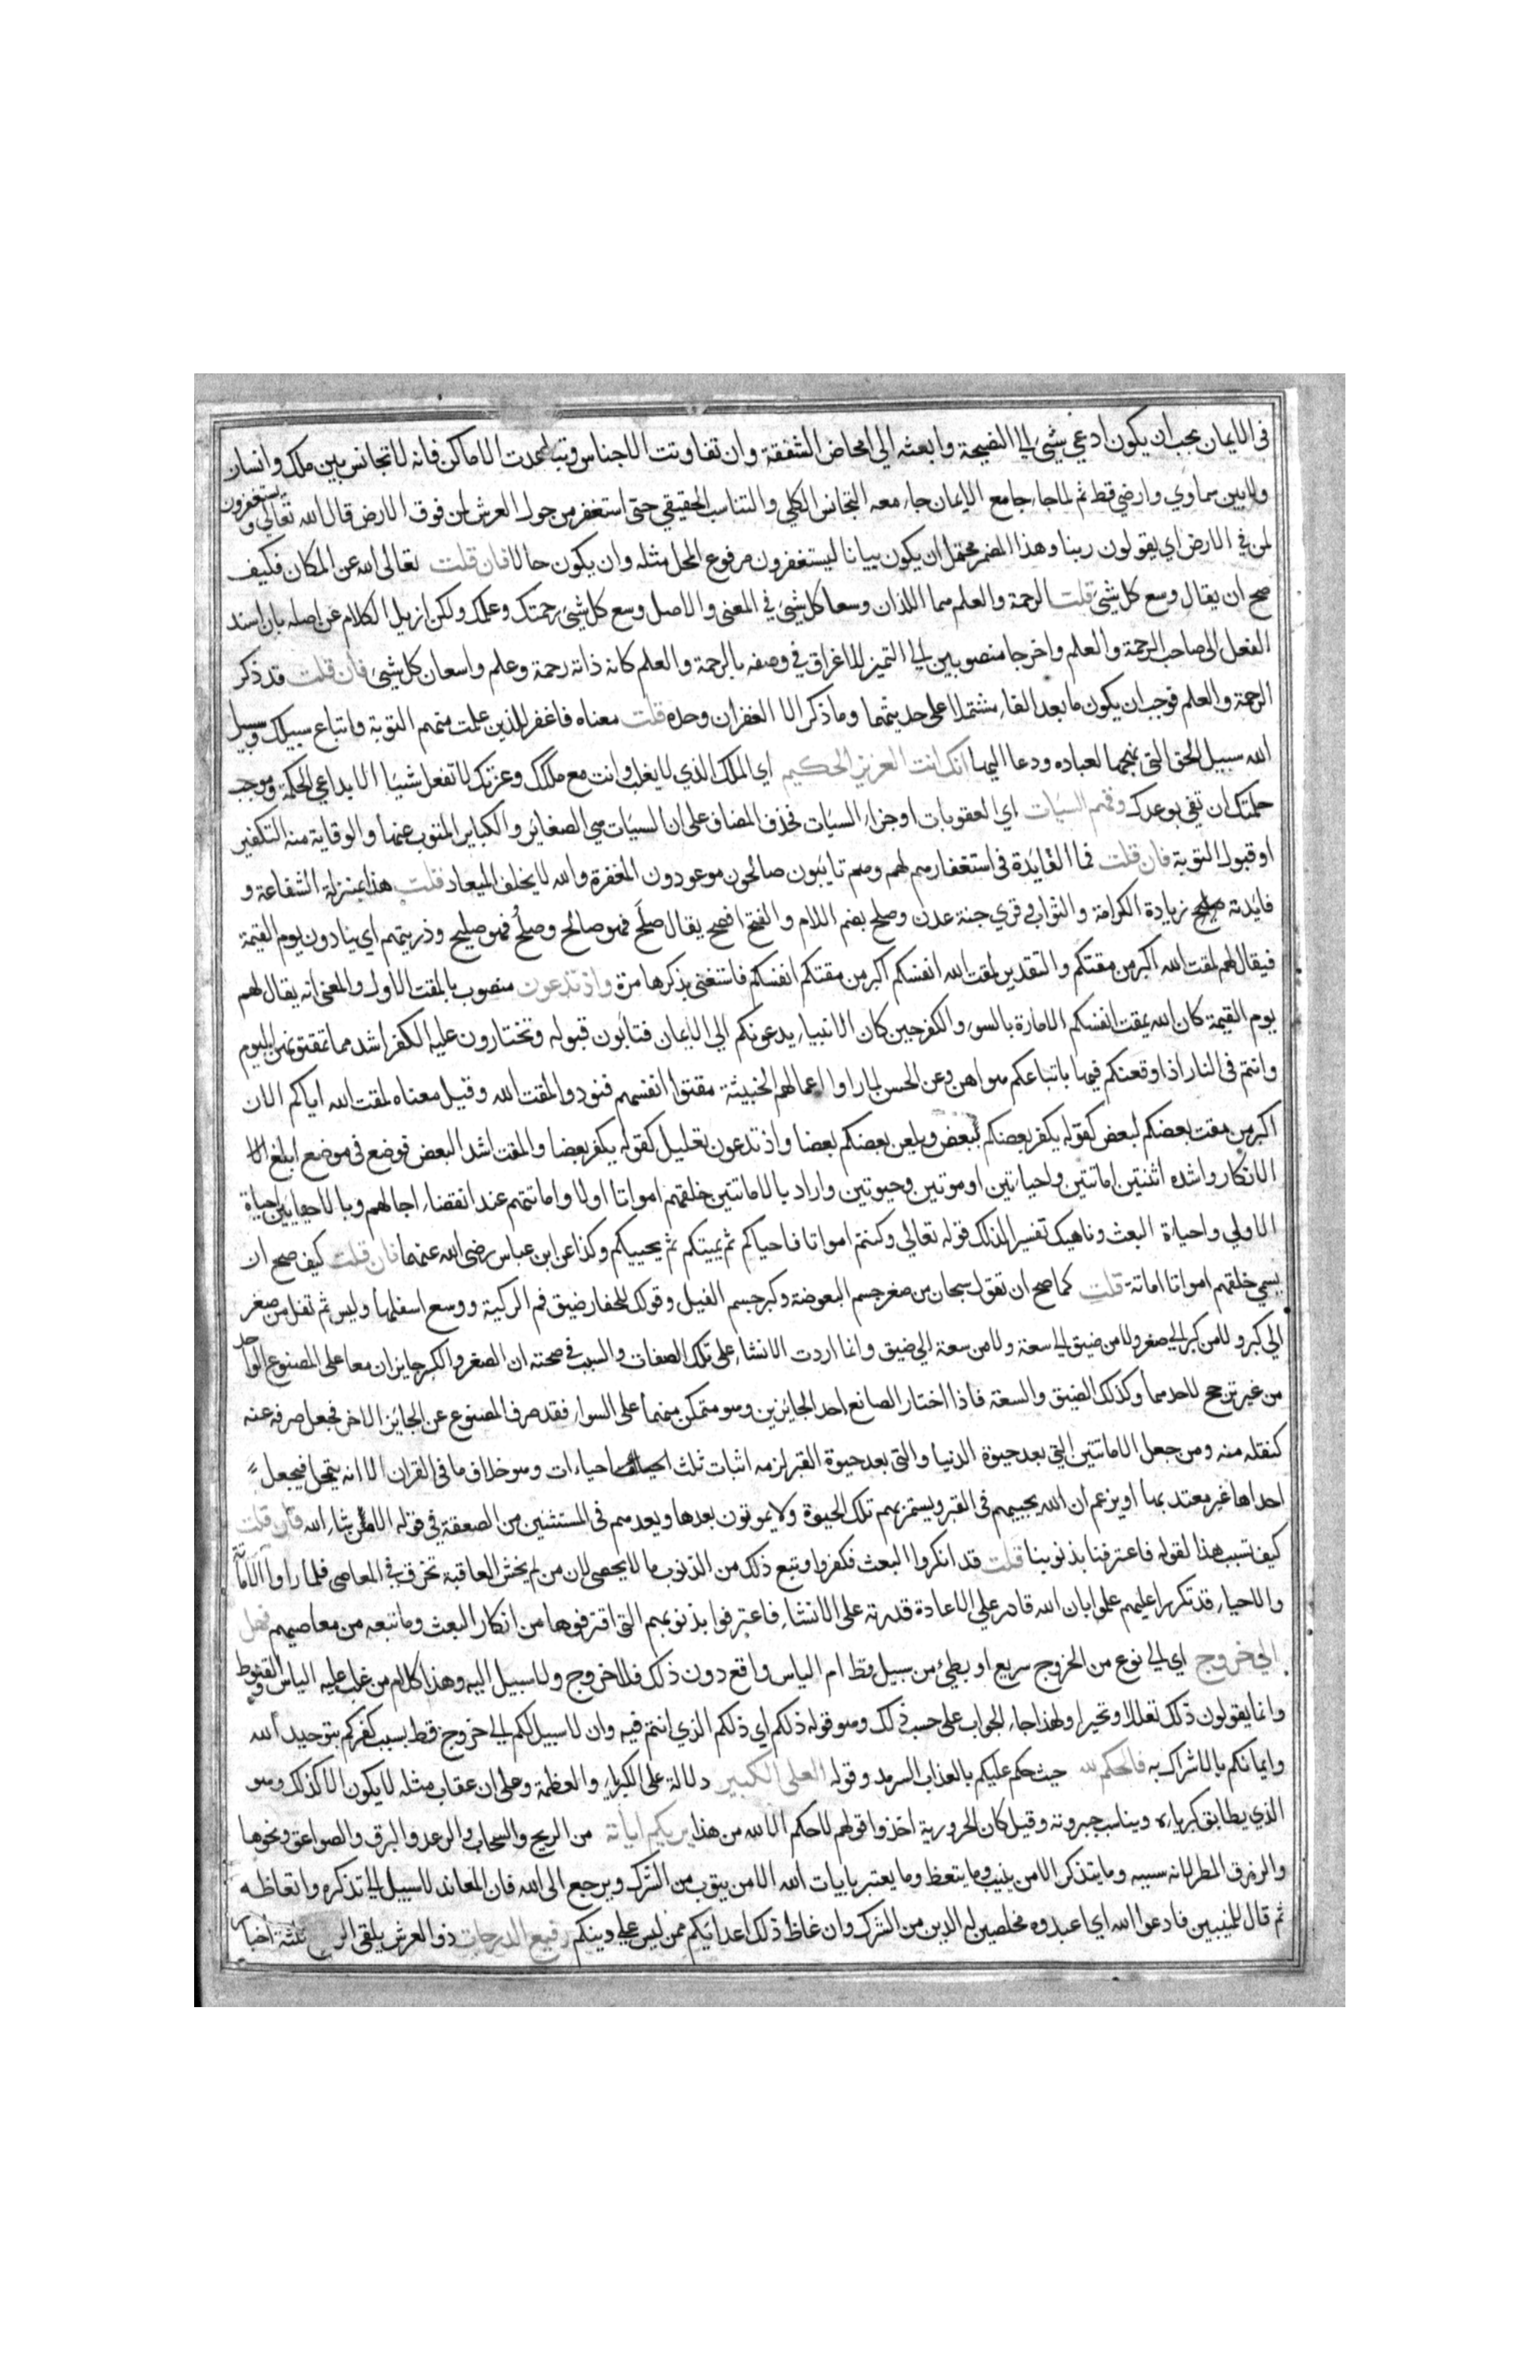 في الايمان يجب ان يكون ادعي شيئ الي النصيحة وابعثه الي امحاض الشفقة وان تفاوتت الاجناس وتباعدت الاماكن فانه لا تجانس بين ملك وانسان
ولا بين سماوي وارضي قط ثم لما جاء جامع الايمان جاء معه التجانس الكلي والتناسب الحقيقي حتى استغفر من حول العرش لمن فوق الارض قال الله تعالي ويستغفرون
لمن في الارض اي يقولون ربنا وهذا المضمر محتمل ان يكون بيانا ليستغفرون مرفوع المحل مثله وان يكون حالا فان قلت تعالى الله عن المكان فكيف
صح ان يقال وسع كل شيئ قلت الرحمة والعلم هما اللذان وسعا كل شيئ في المعنى والاصل وسع كل شيئ رحمتك وعلمك ولكن ازيل الكلام عن اصله بان اسند
الفعل الى صاحب الرحمة والعلم واخرجا منصوبين الي التميز للاغراق في وصفه بالرحمة والعلم كانه ذاته رحمة وعلم واسعان كل شيئ فان قلت قد ذكر
الرحمة والعلم فوجب ان يكون ما بعد الفاء مشتملا على حديثهما وما ذكر الا الغفران وحده قلت معناه فاغفر للذين علمت منهم التوبة واتباع سبيلك وسبيل
الله سبيل الحق التي نهجها لعباده ودعا اليها انك انت العزيز الحكيم اي الملك الذي لا يغلب وانت مع ملكك وعزتك لا تفعل شيئا الا بداعي الحكمة وموجب
حكمتك ان تفي بوعدك وقهم السيئات اي العقوبات او جزاء السيئات فحذف المضاف على ان السيئات هي الصغائر والكبائر المتوب عنها والوقاية منه التكفير
او قبول التوبة فان قلت فما الفائدة في استغفارهم لهم وهم تائبون صالحون موعودون المغفرة والله لا يخلف الميعاد قلت هذا بمنزلة الشفاعة و
فائدته زيادة الكرامة والثواب وقري جنة عدن وصلح بضم اللام والفتح افصح يقال صلح فهو صالح وصلح فهو صليح وذريتهم اي ينادون يوم القيمة
فيقال لهم لمقت الله اكبر من مقتكم والتقدير لمقت الله انفسكم اكبر من مقتكم انفسكم فاستغنى بذكرها مرة واذ تدعون منصوب بالمقت الاول والمعنى انه يقال لهم
يوم القيمة كان الله يمقت انفسكم الامارة بالسوء والكفر حين كان الانبياء يدعونكم الي الايمان فتابون قبوله وتختارون عليه الكفر اشد مما تمقتونهن اليوم
وانتم في النار اذا وقعتكم فيها باتباعكم هواهن وعن الحسن لما راوا اعمالهم الخبيثة مقتوا انفسهم فنودوا لمقت الله وقيل معناه لمقت الله اياكم الان
اكبر من مقت بعضكم لبعض كقوله يكفر بعضكم ببعض ويلعن بعضكم بعضا واذ تدعون تعليل كقوله يكفر بعضا والمقت اشد البغض فوضع في موضع ابلغ
الانكار واشده اثنتين اماتتين واحياءتين او موتتين وحيوتين واراد بالاماتتين خلقهم امواتا اولا واماتتهم عند انقضاء اجالهم وبالاحياءتين احياة
الاولي واحياة البعث وناهيك تفسيرا لذلك قوله تعالي وكنتم امواتا فاحياكم ثم يميتكم ثم يحييكم وكذا عن ابن عباس رضي الله عنهما فان قلت كيف صح ان
يسمي خلقهم امواتا اماتة قلت كما صح ان تقول سبحان من صغر جسم البعوضة وكبر جسم الفيل وقولك للحفار ضيق فم الركية ووسع اسفلها وليس ثم نقل من صغر
الي كبر ولا من كبر الي صغر ولا من ضيق الي سعة ولا من سعة الي ضيق وانما اردت الانشاء على تلك الصفات والسبب في صحته ان الصغر والكبر جايزان معا على المصنوع الواحد
من غير ترجح لاحدهما وكذلك الضيق والسعة فاذا اختار الصانع احد الجايزين وهو متمكن منهما على السواء فقد صرف المصنوع عن الجائز الاخر فجعل صرفه عنه
كنقله منه ومن جعل الاماتتين التي بعد حيوة الدنيا والتي بعد حيوة القبر لزمه اثبات ثلث احياءات وهو خلاف ما في القران الا انه يتمحل فيجعل
احداها غير معتد بها او يزعم ان الله يحييهم في القبر ويستمر بهم تلك الحيوة ولا يموتون بعدها ويعدهم في المستثنين من الصعقة في قوله الا من شاء الله فان قلت
كيف تسبب هذا لقوله فاعترفنا بذنوبنا قلت قد انكروا البعث فكفروا وتبع ذلك من الذنوب ما لا يحصى لان من لم يخش العاقبة تخرق في المعاصي فلما راوا الاماتة
والاحياء قد تكررا عليهم علموا بان الله قادر علي الاعادة قدرته على الانشاء فاعترفوا بذنوبهم التي اقترفوها من انكار البعث وما تبعه من معاصيهم فهل
الي خروج اي الي نوع من الخروج سريع او بطيئ من سبيل قط ام الياس واقع دون ذلك فلا خروج ولا سبيل اليه وهذا كلام من غلب عليه الياس والقنوط
وانما يقولون ذلك تعللا وتحيرا ولهذا جاء الجواب على حسب ذلك وهو قوله ذلكم اي ذلكم الذي انتم فيه وان لا سبيل لكم الي خروج قط بسبب كفركم بتوحيد الله
وايمانكم بالاشراك به فالحكم لله حيث حكم عليكم بالعذاب السرمد وقوله العلي الكبير دلالة على الكبرياء والعظمة وعلى ان عقاب مثله لا يكون الا كذلك وهو
الذي يطابق كبرياءه ويناسب جبروته وقيل كان الحرورية اخذوا قولهم لا حكم الا لله من هذا يريكم اياته من الريح والسحاب والرعد والبرق والصواعق ونحوها
والرزق المطر لانه سببه وما يتذكر الا من ينيب وما يتعظ وما يعتبر بايات الله الا من يتوب من الشرك ويرجع الى الله فان المعاند لا سبيل الي تذكره واتعاظه
ثم قال للمنيبين فادعوا الله اي اعبدوه مخلصين له الدين من الشرك وان غاظ ذلك اعدائكم ممن ليس علي دينكم رفيع الدرجات ذو العرش يلقي الروح ثلثة اخبار